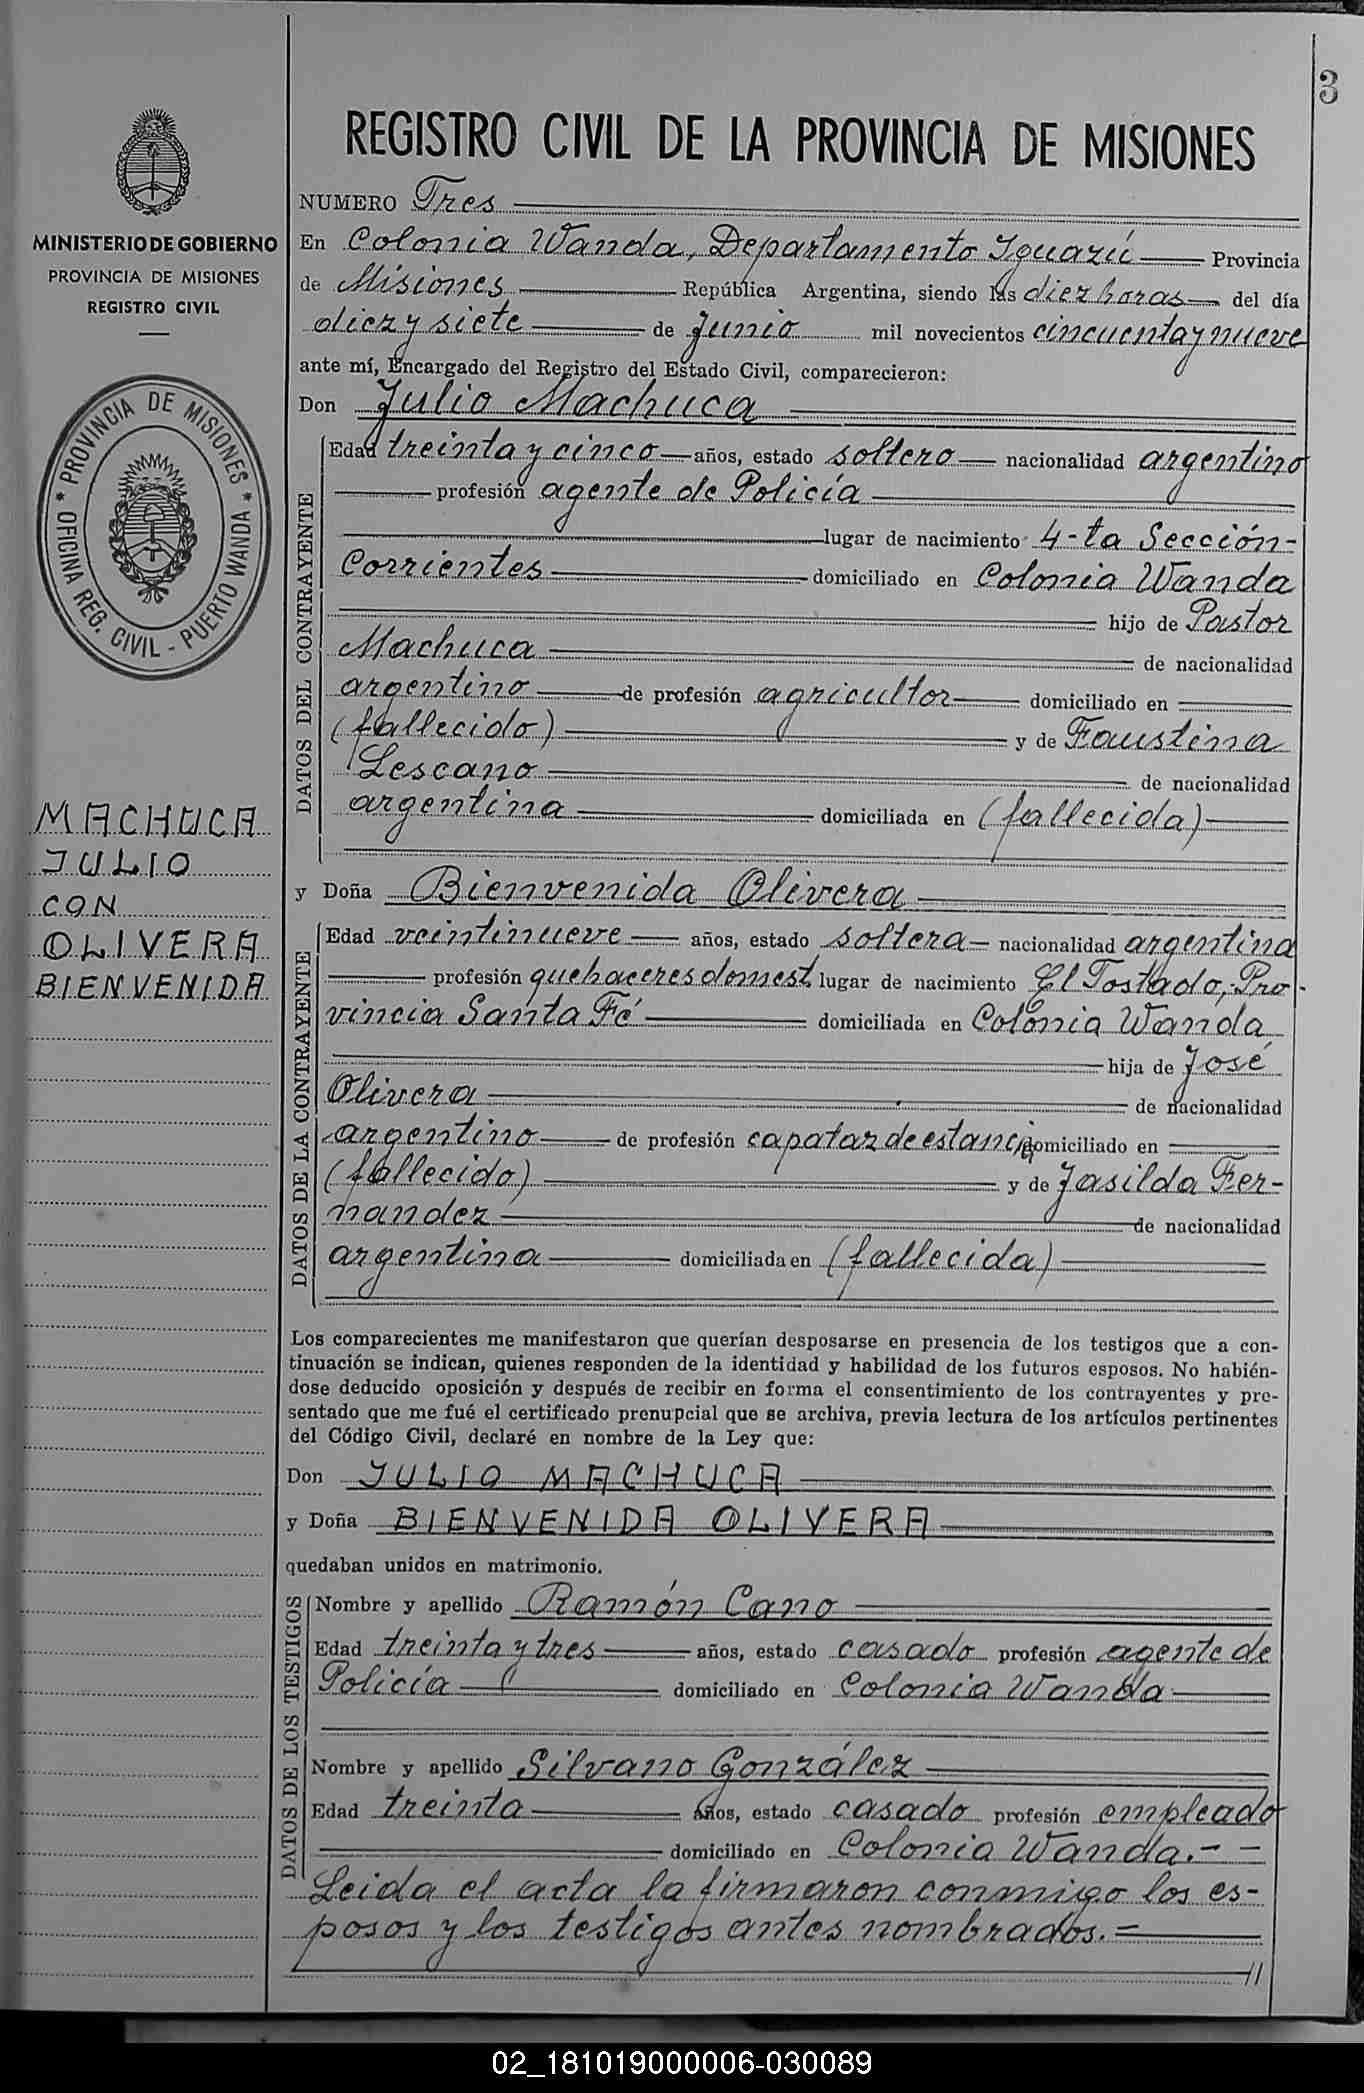 3
REGISTRO CIVIL DE LA PROVINCIA DE MISIONES
MINISTERIO DE GOBIERNO
PROVINCIA DE MISIONES
REGISTRO CIVIL
* PROVINCIA DE MISIONES *
OFICINA REG. CIVIL - PUERTO WANDA
MACHUCA
JULIO
CON
OLIVERA
BIENVENIDA
NUMERO Tres
En Colonia Wanda, Departamento Iguazú Provincia
de Misiones República Argentina, siendo las diez horas del día
diez y siete de Junio mil novecientos cincuenta y nueve
ante mí, Encargado del Registro del Estado Civil, comparecieron:
Don Julio Machuca
DATOS DEL CONTRAYENTE
Edad treinta y cinco años, estado soltero nacionalidad argentino
profesión agente de Policía
lugar de nacimiento 4-ta Sección-
Corrientes domiciliado en Colonia Wanda
hijo de Pastor
Machuca de nacionalidad
argentino de profesión agricultor domiciliado en
(fallecido) y de Faustina
Lescano de nacionalidad
argentina domiciliada en (fallecida)
y Doña Bienvenida Olivera
DATOS DE LA CONTRAYENTE
Edad veintinueve años, estado soltera nacionalidad argentina
profesión quehaceres domest. lugar de nacimiento El Tostado, Pro-
vincia Santa Fé domiciliada en Colonia Wanda
hija de José
Olivera de nacionalidad
argentino de profesión capataz de estancia domiciliado en
(fallecido) y de Jasilda Fer-
nandez de nacionalidad
argentina domiciliada en (fallecida)
Los comparecientes me manifestaron que querían desposarse en presencia de los testigos que a con-
tinuación se indican, quienes responden de la identidad y habilidad de los futuros esposos. No habién-
dose deducido oposición y después de recibir en forma el consentimiento de los contrayentes y pre-
sentado que me fué el certificado prenupcial que se archiva, previa lectura de los artículos pertinentes
del Código Civil, declaré en nombre de la Ley que:
Don JULIO MACHUCA
y Doña BIENVENIDA OLIVERA
quedaban unidos en matrimonio.
DATOS DE LOS TESTIGOS
Nombre y apellido Ramón Cano
Edad treinta y tres años, estado casado profesión agente de
Policía domiciliado en Colonia Wanda
Nombre y apellido Silvano González
Edad treinta años, estado casado profesión empleado
domiciliado en Colonia Wanda.- -
Leida el acta la firmaron conmigo los es-
posos y los testigos antes nombrados.=
//
02_181019000006-030089